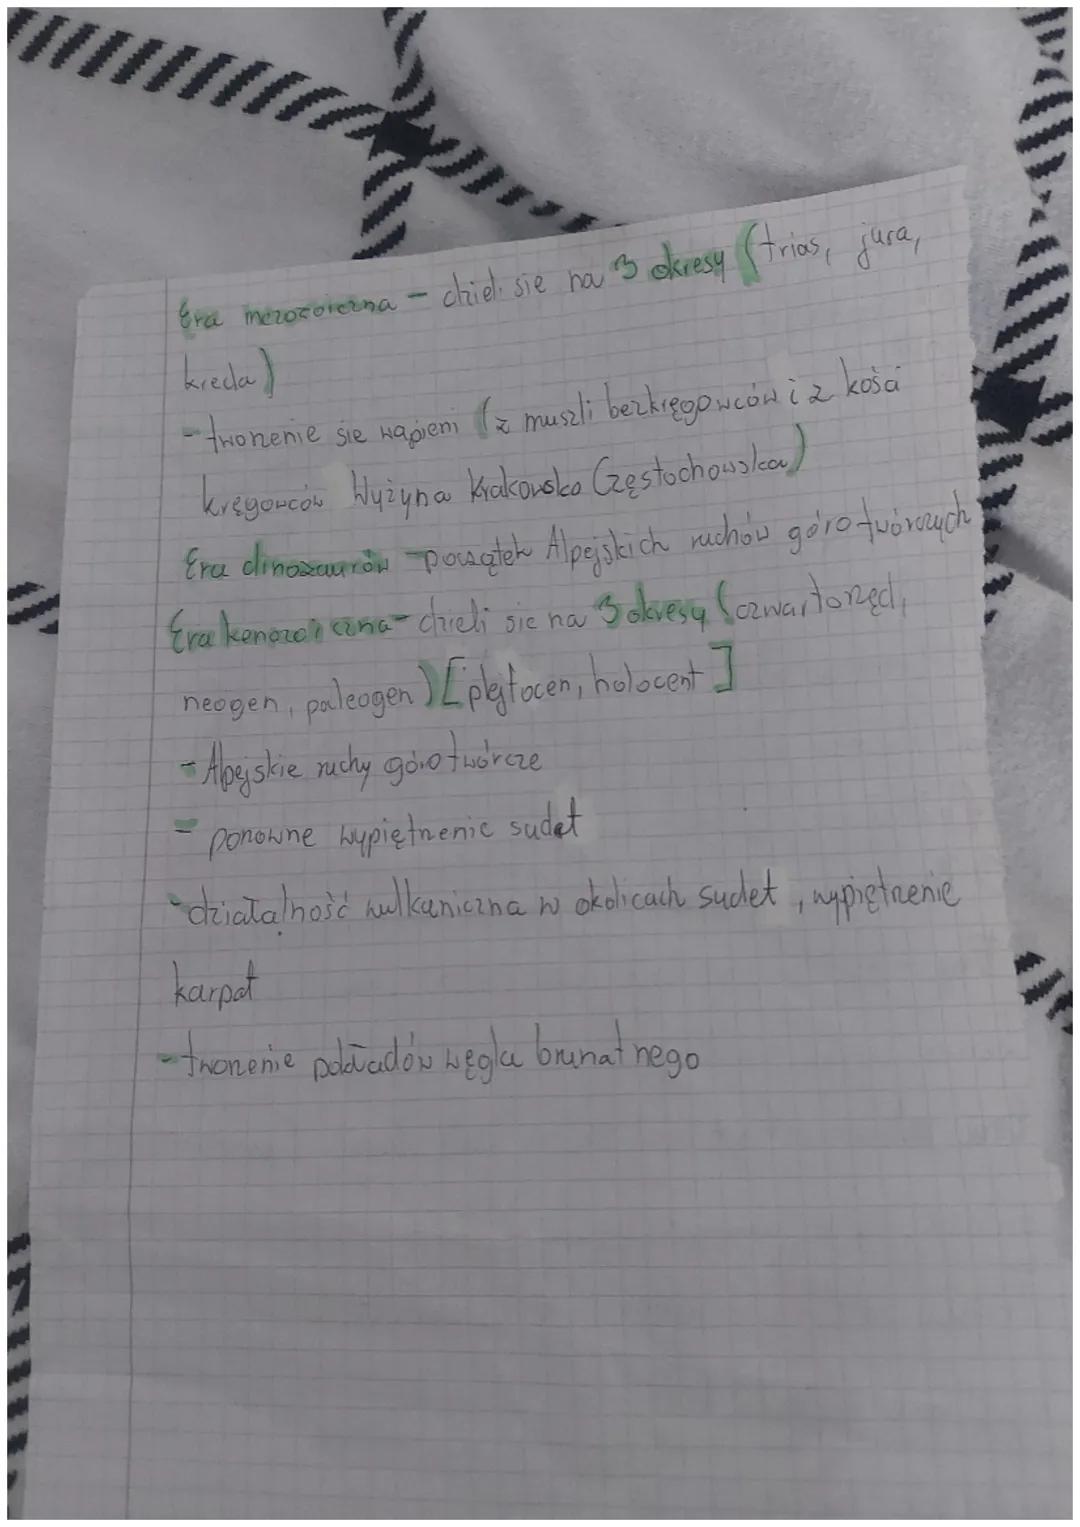 Era mezozoiczna - dzieli sie na 3 okresy (trias, jura,
kreda)
- tworzenie sie wapieni (z muszli bezkręgowców i z kości
kręgowców Wyżyna Krakowsko Częstochowska)
Era dinozaurów - początek Alpejskich ruchów górotwórczych
Era kenozoiczna - dzieli sie na 3 okresy (czwartorzęd,
neogen, paleogen) [plejtocen, holocent]
- Alpejskie ruchy górotwórcze
- ponowne wypiętrzenie sudet
- działalność wulkaniczna w okolicach sudet, wypiętrzenie
karpat
- tworzenie pokładów węgla brunatnego